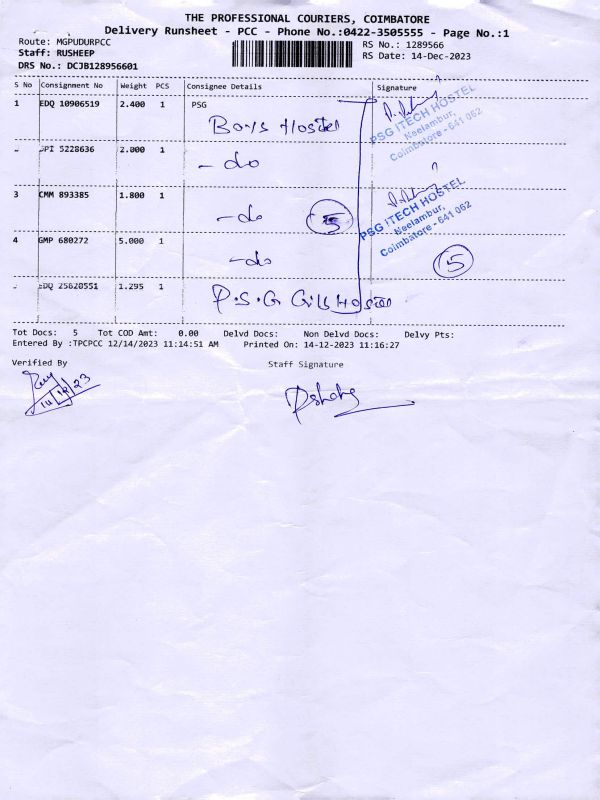 THE PROFESSIONAL COURIERS, COIMBATORE
Delivery Runsheet - PCC - Phone No.:0422-3505555 - Page No.:1
Route: MGPUDURPCC
RS No.: 1289566
Staff: RUSHEEP
RS Date: 14-Dec-2023
DRS No.: DCJB128956601
S No Consignment No Weight PCS Consignee Details Signature
1 EDQ 10906519 2.400 1 PSG
Boys Hostel
PSG ITECH HOSTEL
Neelambur,
Coimbatore - 641 062
JPI 5228636 2.000 1
- do
3 CMM 893385 1.800 1
- do 5
PSG ITECH HOSTEL
Neelambur,
Coimbatore - 641 062
4 GMP 680272 5.000 1
- do
5
EDQ 25620551 1.295 1
P.S.G Girls Hostel
Tot Docs: 5 Tot COD Amt: 0.00 Delvd Docs: Non Delvd Docs: Delvy Pts:
Entered By :TPCPCC 12/14/2023 11:14:51 AM Printed On: 14-12-2023 11:16:27
Verified By Staff Signature
14/12/23